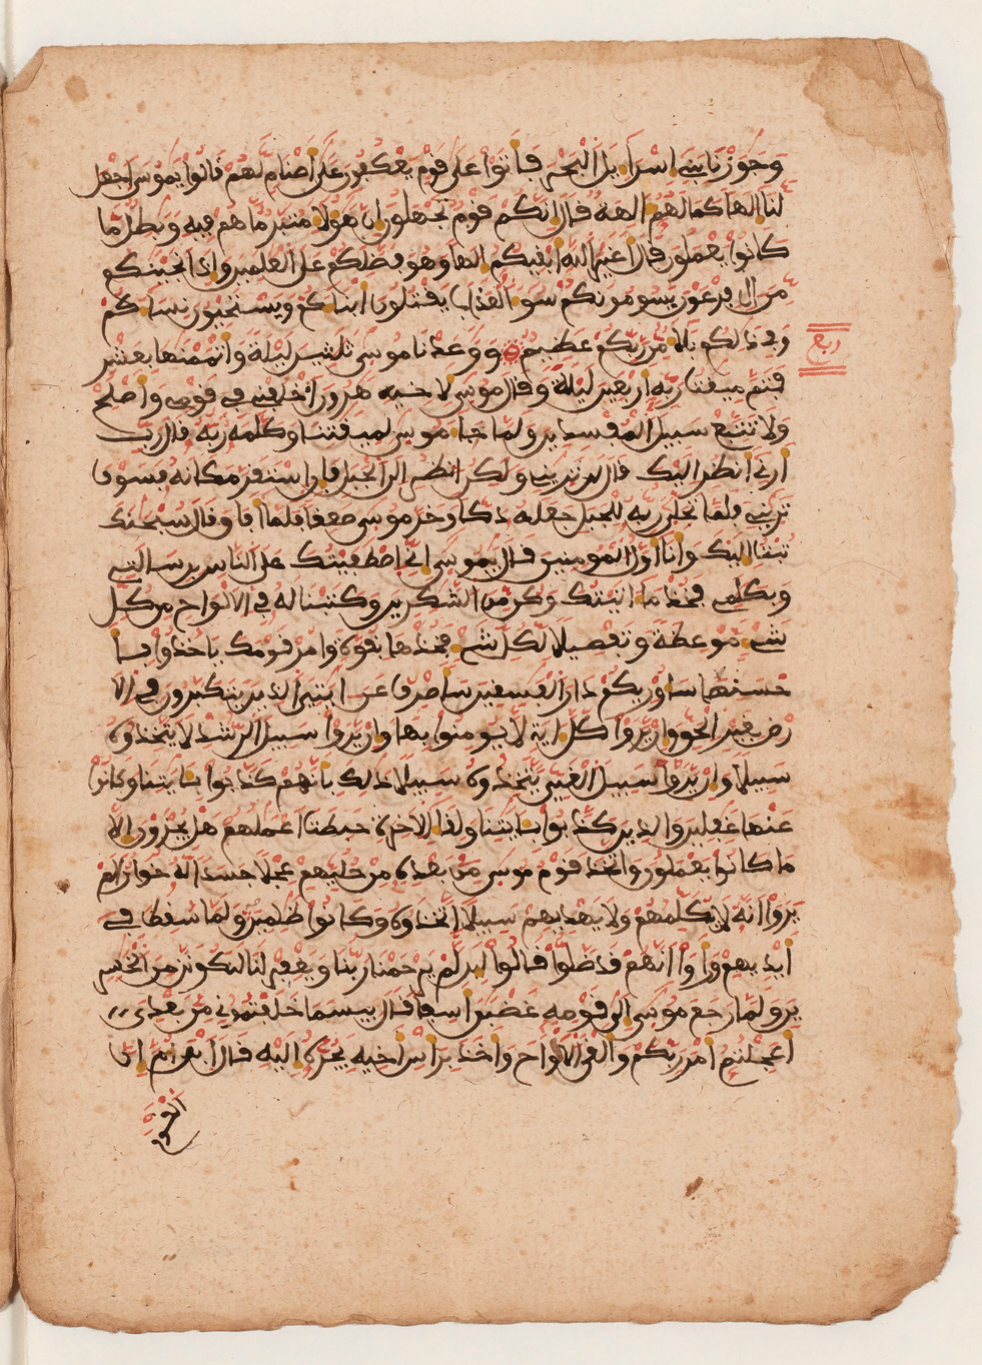 وجوزنا ببني اسراءيل البحر فاتوا على قوم يعكفون على اصنام لهم قالوا يموسى اجعل
لنا الها كما لهم الهة قال انكم قوم تجهلون ان هؤلا متبر ما هم فيه وبطل ما
كانوا يعملون قال اغير الله ابغيكم الها وهو فضلكم على العلمين واذ انجينكم
من ال فرعون يسومونكم سو العذاب يقتلون ابناكم ويستحيون نساكم
وفي ذلكم بلا من ربكم عظيم ووعدنا موسى ثلثين ليلة واتممنها بعشر
ربع
فتم ميقت ربه اربعين ليلة وقال موسى لاخيه هرون اخلفني في قومي واصلح
ولا تتبع سبيل المفسدين ولما جا موسى لميقتنا وكلمه ربه قال رب
ارني انظر اليك قال لن تريني ولكن انظر الى الجبل فان استقر مكانه فسوف
تريني فلما تجلى ربه للجبل جعله دكا وخر موسى صعقا فلما افا و قال سبحنك
تبت اليك وانا اول المومنين قال يموسى اني اصطفيتك على الناس برسالتي
وبكلمي فخذ ما اتيتك وكن من الشكرين وكتبنا له في الالواح من كل
شي موعظة وتفصيلا لكل شي فخذها بقوة وامر قومك ياخذوا با
حسنها ساوريكم دار الفسقين ساصرف عن ايتي الذين يتكبرون في الا
رض بغير الحق وان يروا كل اية لا يومنوا بها وان يروا سبيل الرشد لا يتخذوه
سبيلا وان يروا سبيل الغي يتخذوه سبيلا ذلك بانهم كذبوا بايتنا وكانوا
عنها غفلين والذين كذبوا بايتنا ولقا الاخرة حبطت اعملهم هل يجزون الا
ما كانوا يعملون واتخذ قوم موسى من بعده من حليهم عجلا جسدا له خوار الم
يروا انه لا يكلمهم ولا يهديهم سبيلا اتخذوه وكانوا ظلمين ولما سقط في
ايديهم وراوا انهم قد ضلوا قالوا لين لم يرحمنا ربنا ويغفر لنا لنكونن من الخس
رين ولما رجع موسى الى قومه غضبن اسفا قال بيسما خلفتموني من بعدي
اعجلتم امر ربكم والقى الالواح واخذ براس اخيه يجره اليه قال ابن ام ان
القوم